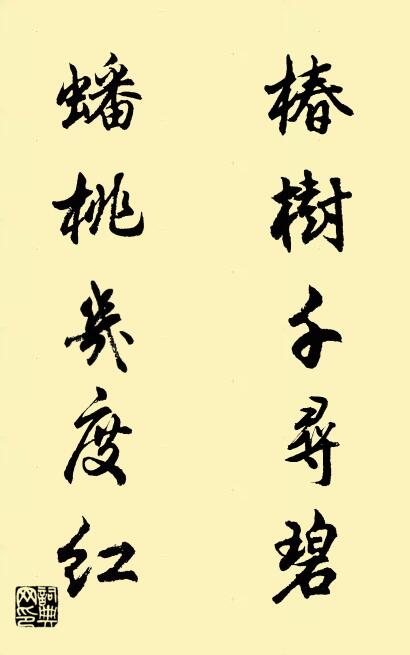 椿樹千尋碧
蟠桃幾度紅
詞典网印